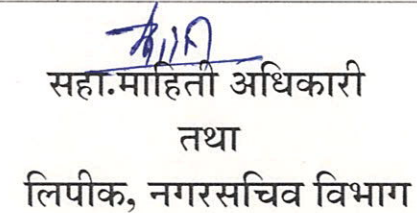 सहा.माहिती अधिकारी
तथा
लिपीक, नगरसचिव विभाग